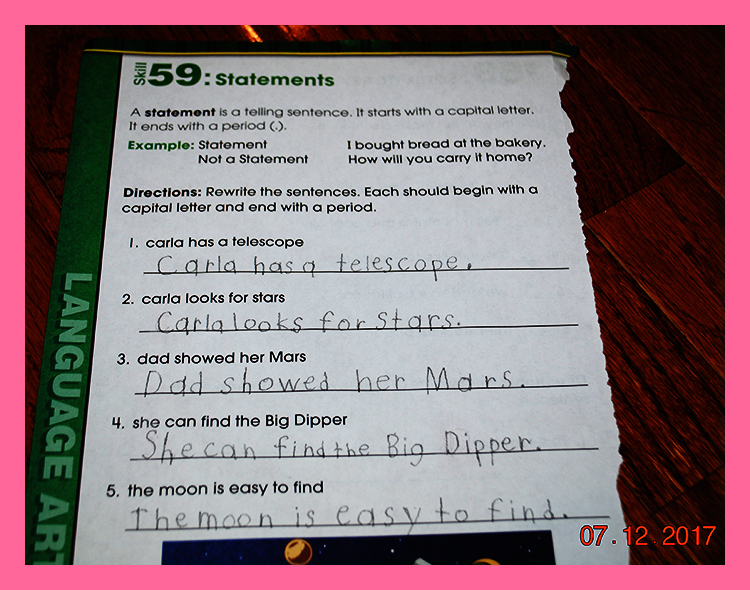 Skill 59: Statements
A statement is a telling sentence. It starts with a capital letter.
It ends with a period (.).
Example: Statement I bought bread at the bakery.
Not a Statement How will you carry it home?
Directions: Rewrite the sentences. Each should begin with a
capital letter and end with a period.
1. carla has a telescope
Carla has a telescope.
2. carla looks for stars
Carla looks for stars.
3. dad showed her Mars
Dad showed her Mars.
4. she can find the Big Dipper
She can find the Big Dipper.
5. the moon is easy to find
The moon is easy to find.
LANGUAGE ART
07.12.2017